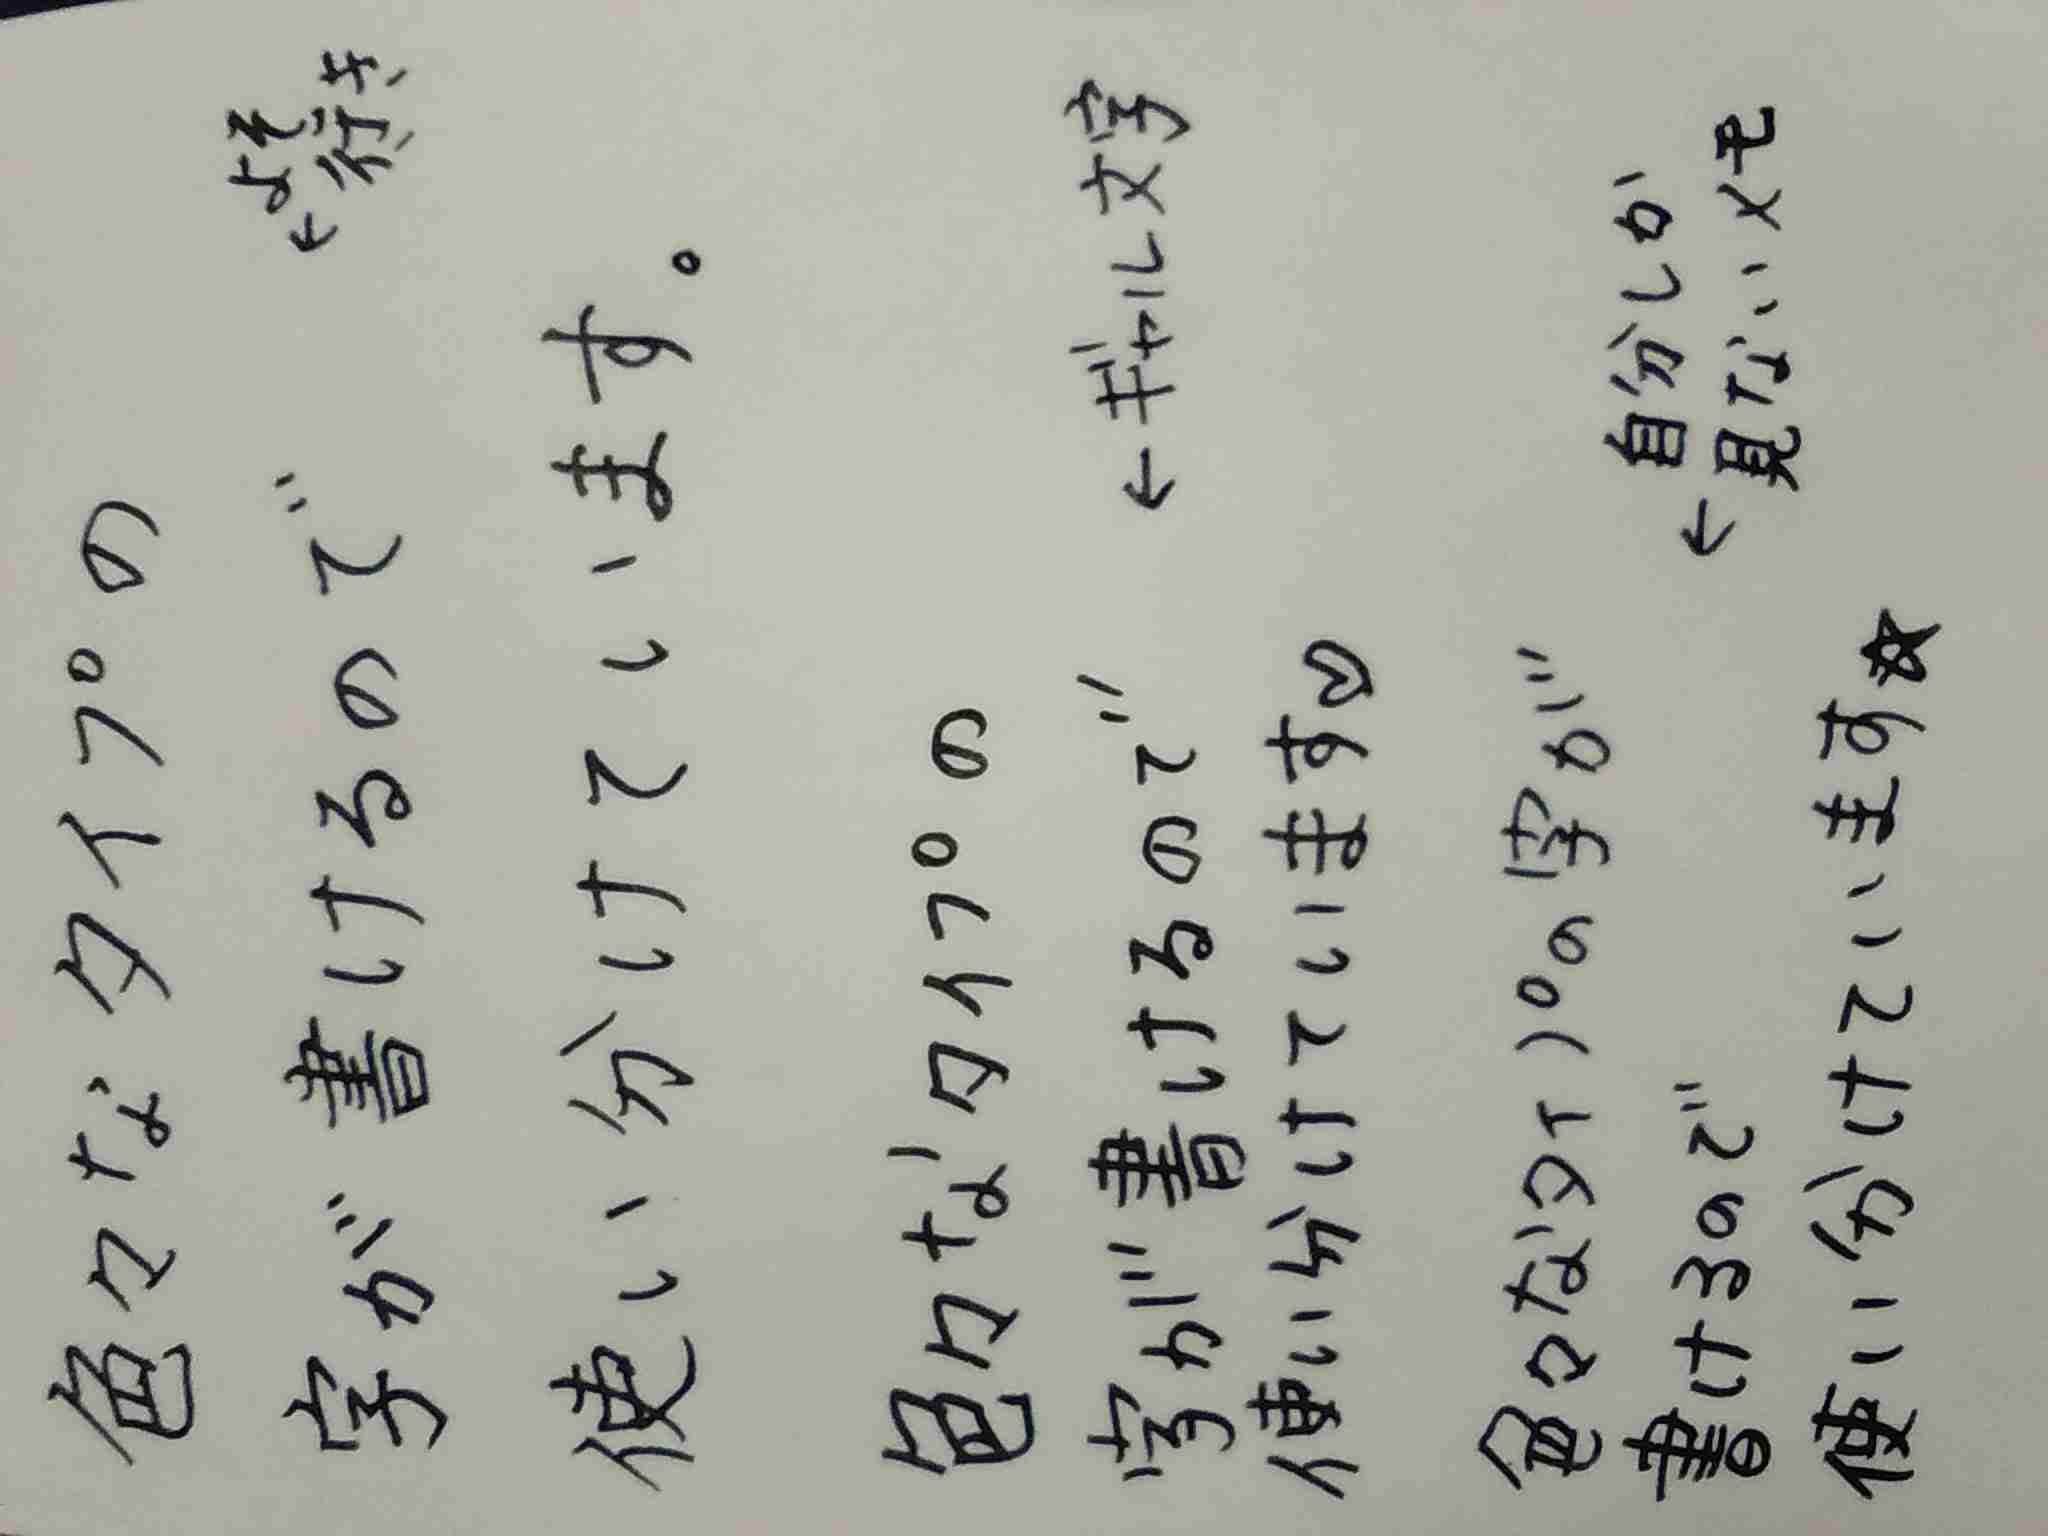 色々なタイプの
字が書けるので
使い分けています。
←よそ
行き
色々なタイプの
字が書けるので
使い分けています♡
←ギャル文字
色々なタイプの字が
書けるので
使い分けています☆
←自分しか
見ないメモ